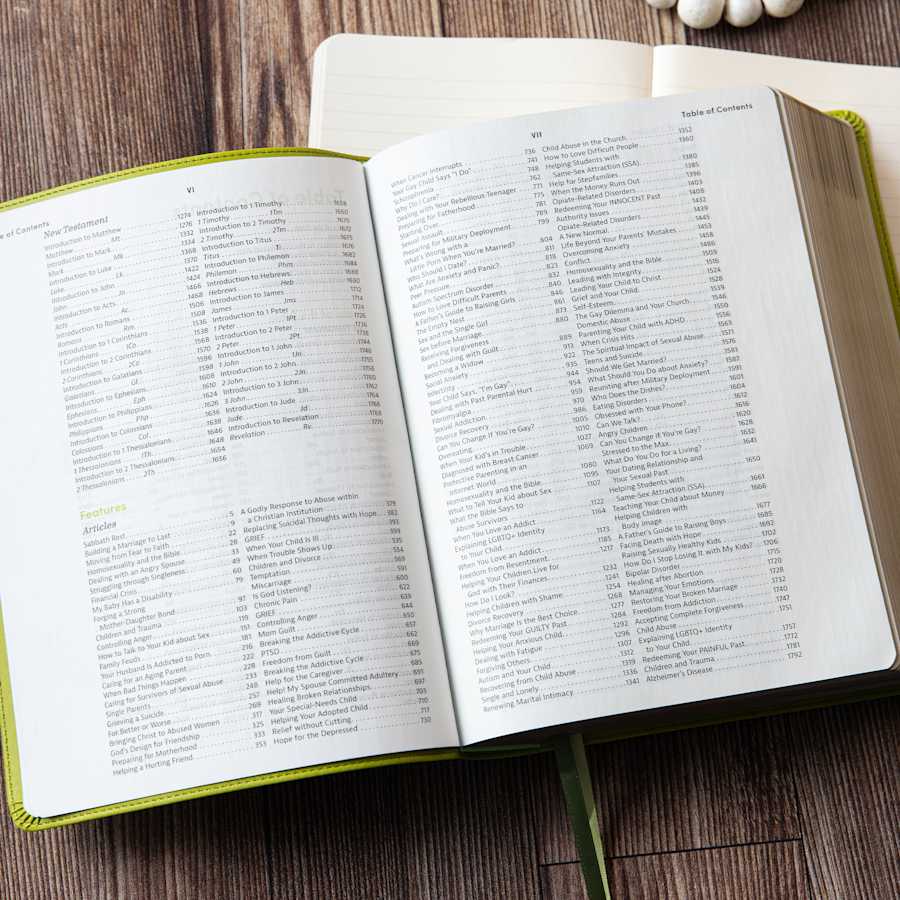 VI
e of Contents
New Testament
Introduction to Matthew 1274
Matthew Mt 1332
Introduction to Mark 1334
Mark
Introduction to Luke
Luke Lk
Introduction to John
John Jn
Introduction to Acts
Acts
Introduction to Romans
Romans Rm
Introduction to 1 Corinthians
1 Corinthians 1Co
Introduction to 2 Corinthians
2 Corinthians 2Co
Introduction to Galatians
Galatians Gl
Introduction to Ephesians
Ephesians Eph
Introduction to Philippians
Philippians Php
Introduction to Colossians
Colossians Col
Introduction to 1 Thessalonians
1 Thessalonians 1Th
Introduction to 2 Thessalonians
2 Thessalonians 2Th
Introduction to 1 Timothy 1658
1 Timothy 1Tm 1660
Introduction to 2 Timothy 1670
2 Timothy 2Tm 1671
Introduction to Titus 1675
Titus Ti 1676
Introduction to Philemon 1682
Philemon Phm 1684
Introduction to Hebrews 1686
Hebrews Heb 1690
Introduction to James 1712
James Jms 1714
Introduction to 1 Peter 1724
1 Peter 1Pt 1726
Introduction to 2 Peter 1736
2 Peter 2Pt 1738
Introduction to 1 John 1744
1 John 1Jn 1746
Introduction to 2 John 1755
2 John 2Jn
Introduction to 3 John 1760
3 John 3Jn 1762
Introduction to Jude 1764
Jude Jd 1766
Introduction to Revelation 1768
Revelation Rv 1770
Features
Articles
Sabbath Rest 5
Building a Marriage to Last 9
Moving from Fear to Faith 22
Homosexuality and the Bible 28
Dealing with an Angry Spouse 33
Struggling through Singleness 49
Financial Crisis 60
My Baby Has a Disability 79
Forging a Strong
Mother-Daughter Bond 97
Children and Trauma 103
Controlling Anger 119
How to Talk to Your Kid about Sex 151
Family Feuds 181
Your Husband Is Addicted to Porn 216
Caring for an Aging Parent 222
When Bad Things Happen 228
Caring for Survivors of Sexual Abuse 233
Single Parents 248
Grieving a Suicide 257
For Better or Worse 269
Bringing Christ to Abused Women 317
God's Design for Friendship 325
Preparing for Motherhood 333
Helping a Hurting Friend 353
A Godly Response to Abuse within
a Christian Institution 379
Replacing Suicidal Thoughts with Hope 382
GRIEF 393
When Your Child Is Ill 399
When Trouble Shows Up 535
Children and Divorce 554
Temptation 569
Miscarriage 591
Is God Listening? 600
Chronic Pain 622
GRIEF 633
Controlling Anger 644
Mom Guilt 650
Breaking the Addictive Cycle 657
PTSD 662
Freedom from Guilt 669
Breaking the Addictive Cycle 675
Help for the Caregiver 685
Help! My Spouse Committed Adultery 691
Healing Broken Relationships 697
Your Special-Needs Child 703
Helping Your Adopted Child 710
Relief without Cutting 717
Hope for the Depressed 730
VII
Table of Contents
When Cancer Interrupts 736
Your Gay Child Says "I Do" 741
Schizophrenia 748
Why Do I Care? 762
Dealing with Your Rebellious Teenager 771
Preparing for Fatherhood 775
Starting Over 781
Sexual Assault 789
Preparing for Military Deployment 799
What's Wrong with a
Little Porn When You're Married? 804
Who Should I Date? 811
What Are Anxiety and Panic? 818
Peer Pressure 823
Autism Spectrum Disorder 832
How to Love Difficult Parents 840
A Father's Guide to Raising Girls 846
The Empty Nest 861
Sex and the Single Girl 873
Sex before Marriage 880
Receiving Forgiveness
and Dealing with Guilt 889
Becoming a Widow 913
Social Anxiety 922
Infertility 935
Your Child Says, "I'm Gay" 944
Dealing with Past Parental Hurt 954
Fibromyalgia 959
Sexual Addiction 970
Divorce Recovery 986
Can You Change If You're Gay? 1005
Overeating 1010
When Your Kid's in Trouble 1027
Diagnosed with Breast Cancer 1069
Protective Parenting in an
Internet World 1080
Homosexuality and the Bible 1095
What to Tell Your Kid about Sex 1107
What the Bible Says to
Abuse Survivors 1122
When You Love an Addict 1164
Explaining LGBTQ+ Identity
to Your Child 1173
When You Love an Addict 1185
Freedom from Resentment 1217
Helping Your Children Live for
God with Their Finances 1232
How Do I Look? 1241
Helping Children with Shame 1254
Divorce Recovery 1268
Why Marriage Is the Best Choice 1277
Redeeming Your GUILTY Past 1284
Helping Your Anxious Child 1292
Dealing with Fatigue 1296
Forgiving Others 1307
Autism and Your Child 1312
Recovering from Child Abuse 1319
Single and Lonely 1336
Renewing Marital Intimacy 1341
Child Abuse in the Church 1352
How to Love Difficult People 1360
Helping Students with
Same-Sex Attraction (SSA) 1380
Help for Stepfamilies 1385
When the Money Runs Out 1396
Opiate-Related Disorders 1403
Redeeming Your INNOCENT Past 1408
Authority Issues 1432
Opiate-Related Disorders 1439
A New Normal 1445
Life Beyond Your Parents' Mistakes 1453
Overcoming Anxiety 1458
Conflict 1486
Homosexuality and the Bible 1509
Leading with Integrity 1515
Leading Your Child to Christ 1524
Grief and Your Child 1528
Self-Esteem 1539
The Gay Dilemma and Your Church 1546
Domestic Abuse 1550
Parenting Your Child with ADHD 1556
When Crisis Hits 1563
The Spiritual Impact of Sexual Abuse 1571
Teens and Suicide 1576
Should We Get Married? 1581
What Should You Do about Anxiety? 1587
Reuniting after Military Deployment 1591
Who Does the Dishes? 1601
Eating Disorders 1604
Obsessed with Your Phone? 1612
Can We Talk? 1616
Angry Children 1620
Can You Change If You're Gay? 1628
Stressed to the Max 1632
What Do You Do for a Living? 1641
Your Dating Relationship and
Your Sexual Past 1650
Helping Students with
Same-Sex Attraction (SSA) 1661
Teaching Your Child about Money 1666
Helping Children with
Body Image 1677
A Father's Guide to Raising Boys 1685
Facing Death with Hope 1692
Raising Sexually Healthy Kids 1702
How Do I Stop Losing It with My Kids? 1706
Bipolar Disorder 1715
Healing after Abortion 1720
Managing Your Emotions 1728
Restoring Your Broken Marriage 1732
Freedom from Addiction 1740
Accepting Complete Forgiveness 1747
Child Abuse 1751
Explaining LGBTQ+ Identity
to Your Child 1757
Redeeming Your PAINFUL Past 1772
Children and Trauma 1781
Alzheimer's Disease 1792